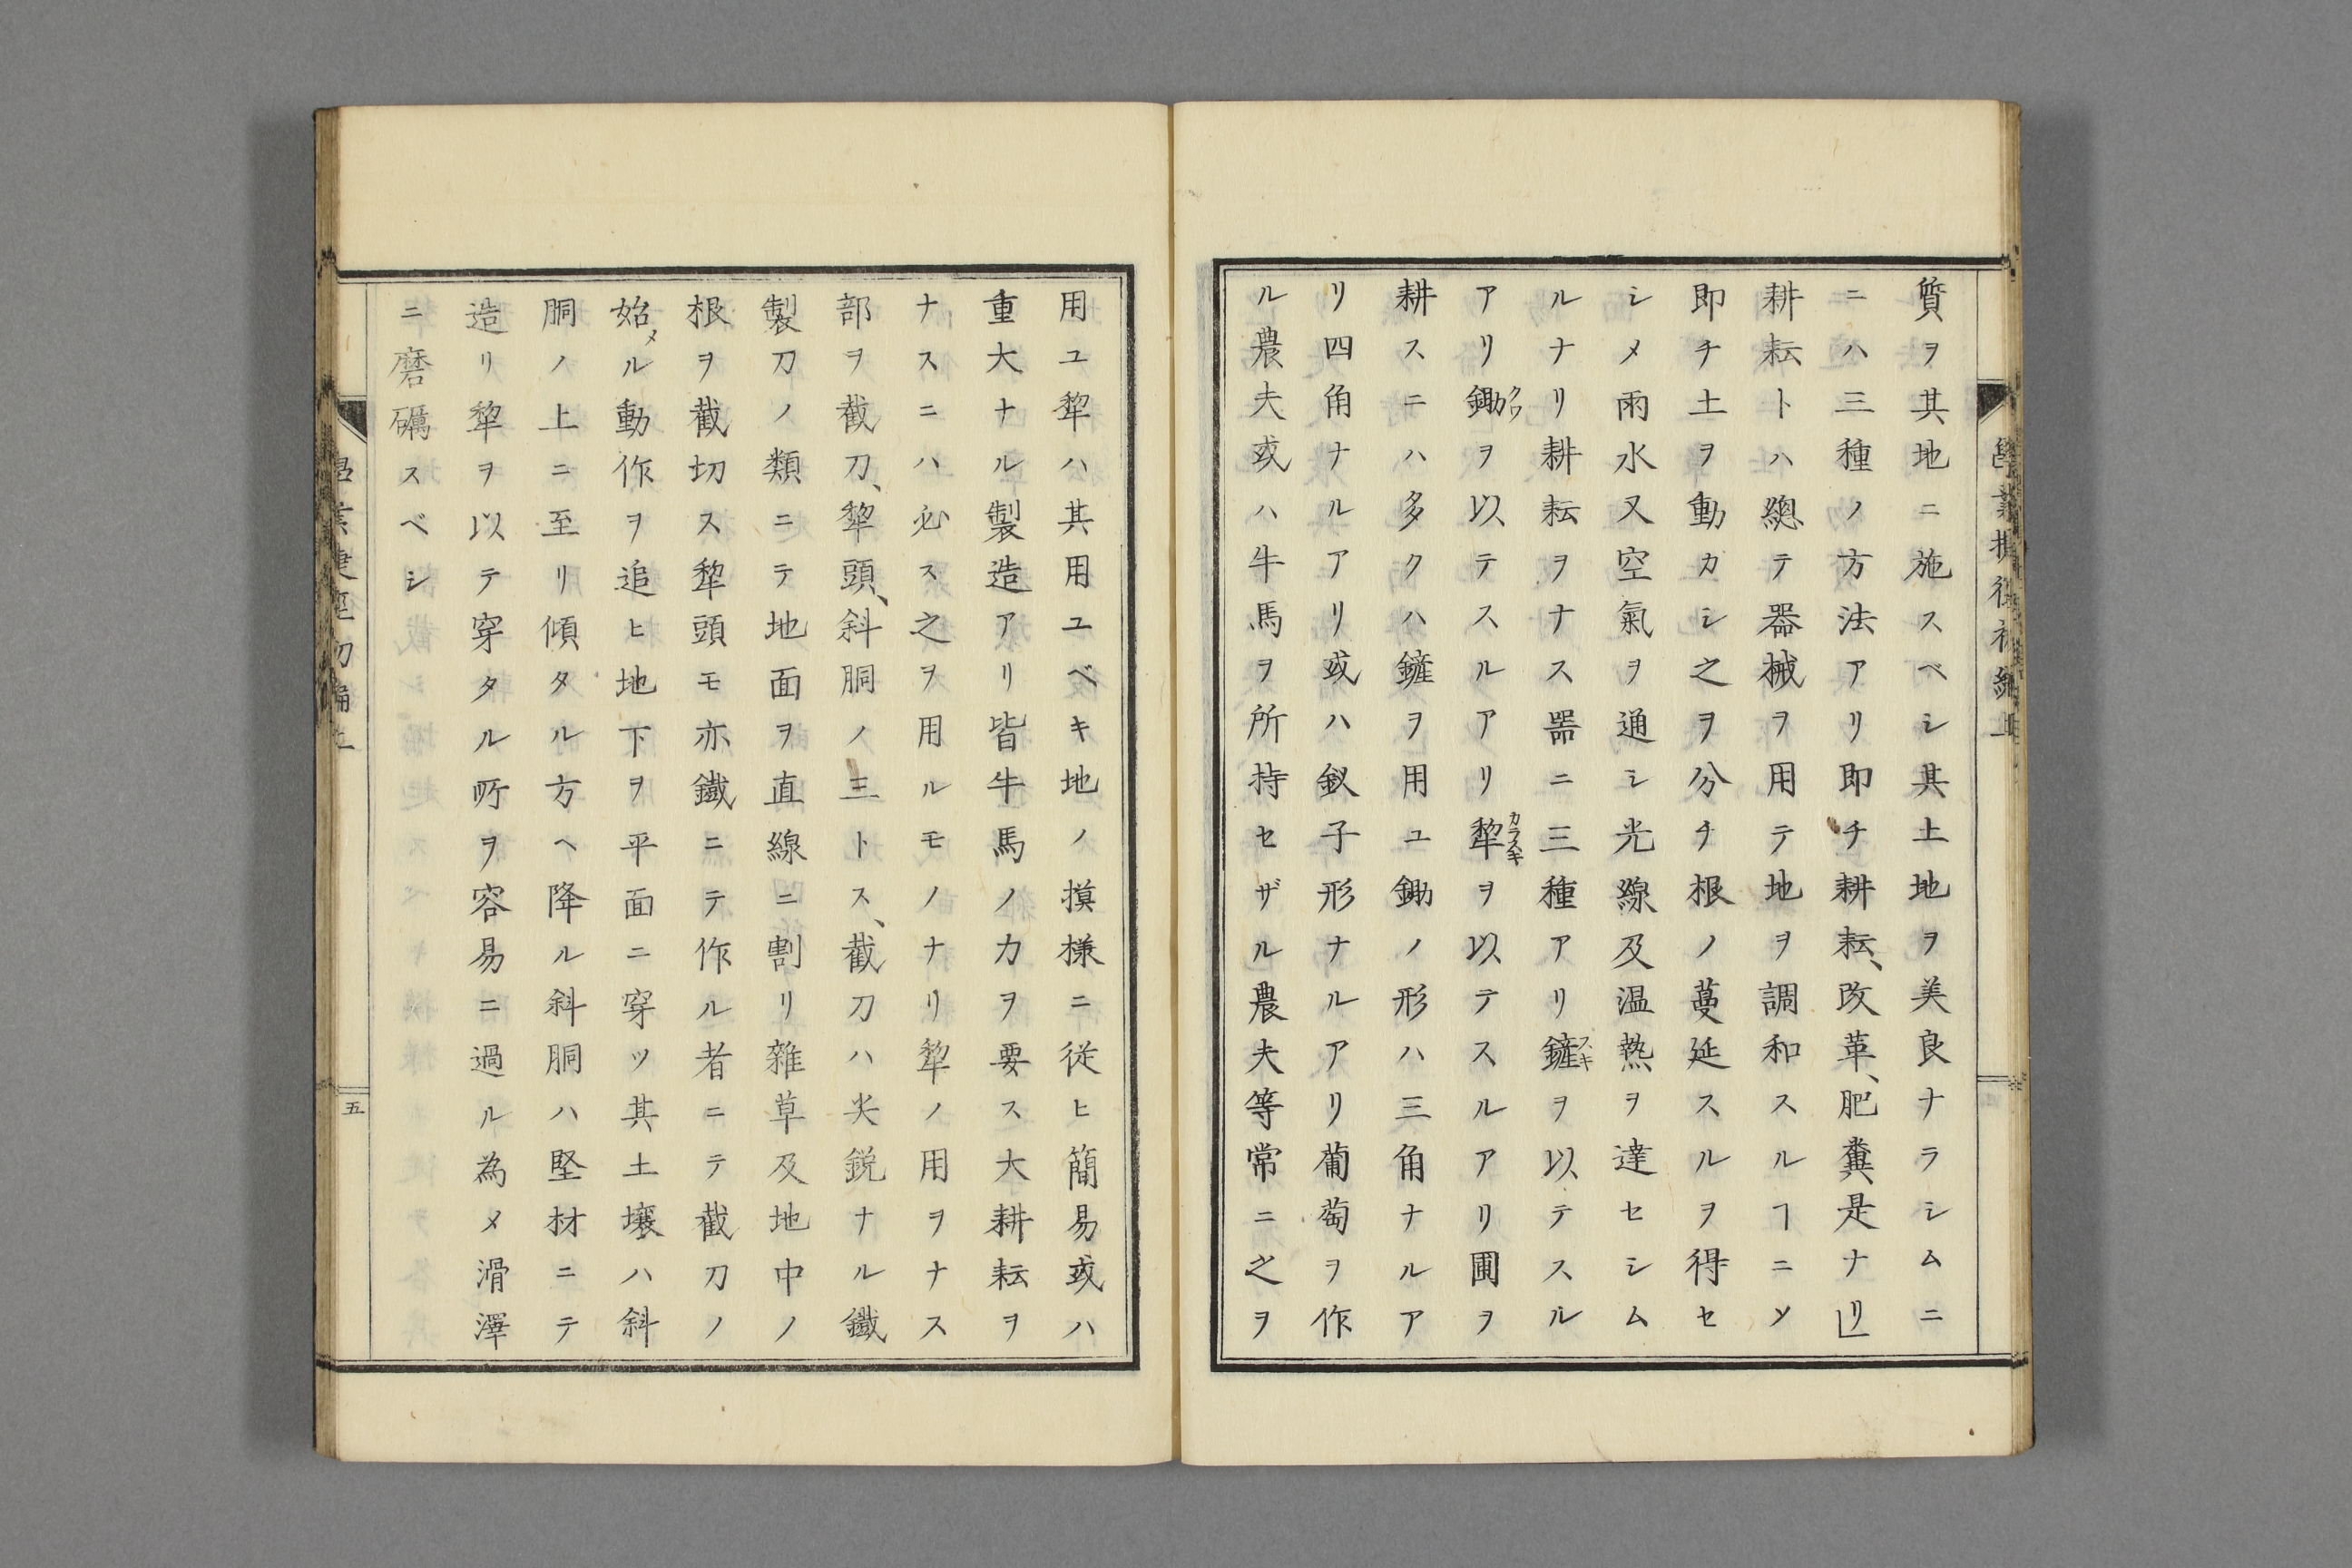 質ヲ其地ニ施スベシ其土地ヲ美良ナラシムニ
ニハ三種ノ方法アリ即チ耕耘、改革、肥糞是ナリ」
耕耘トハ總テ器械ヲ用テ地ヲ調和スルヿニメ
即チ土ヲ動カシ之ヲ分チ根ノ蔓延スルヲ得セ
シメ雨水又空氣ヲ通シ光線及温熱ヲ達セシム
ルナリ耕耘ヲナス器ニ三種アリ鏟スキヲ以テスル
アリ鋤クワヲ以テスルアリ犂カラスキヲ以テスルアリ圃ヲ
耕スニハ多クハ鏟ヲ用ユ鋤ノ形ハ三角ナルア
リ四角ナルアリ或ハ釵子形ナルアリ葡萄ヲ作
ル農夫或ハ牛馬ヲ所持セザル農夫等常ニ之ヲ
用ユ犂ハ其用ユベキ地ノ摸様ニ従ヒ簡易或ハ
重大ナル製造アリ皆牛馬ノ力ヲ要ス大耕耘ヲ
ナスニハ必ス之ヲ用ルモノナリ犂ノ用ヲナス
部ヲ截刀、犂頭、斜胴ノ三トス、截刀ハ尖鋭ナル鐵
製刀ノ類ニテ地面ヲ直線ニ割リ雜草及地中ノ
根ヲ截切ス犂頭モ亦鐵ニテ作ル者ニテ截刀ノ
始メル動作ヲ追ヒ地下ヲ平面ニ穿ツ其土壤ハ斜
胴ノ上ニ至リ傾タル方ヘ降ル斜胴ハ堅材ニテ
造リ犂ヲ以テ穿タル所ヲ容易ニ過ル為メ滑澤
ニ磨礪スベシ
五